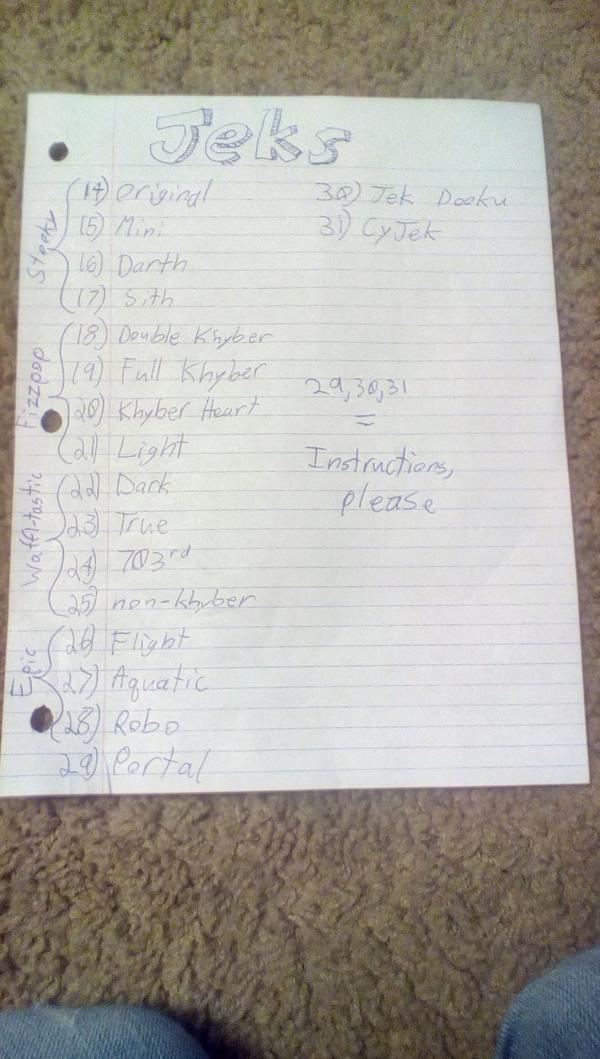 Jeks
14) Original
15) Mini
16) Darth
17) Sith
18) Double Khyber
19) Full Khyber
20) Khyber Heart
21) Light
22) Dark
23) True
24) 703rd
25) non-khyber
26) Flight
27) Aquatic
28) Robo
29) Portal
30) Jek Dooku
31) CyJek
29,30,31
=
Instructions,
please
Fizzpop
Waffl-tastic
Epic